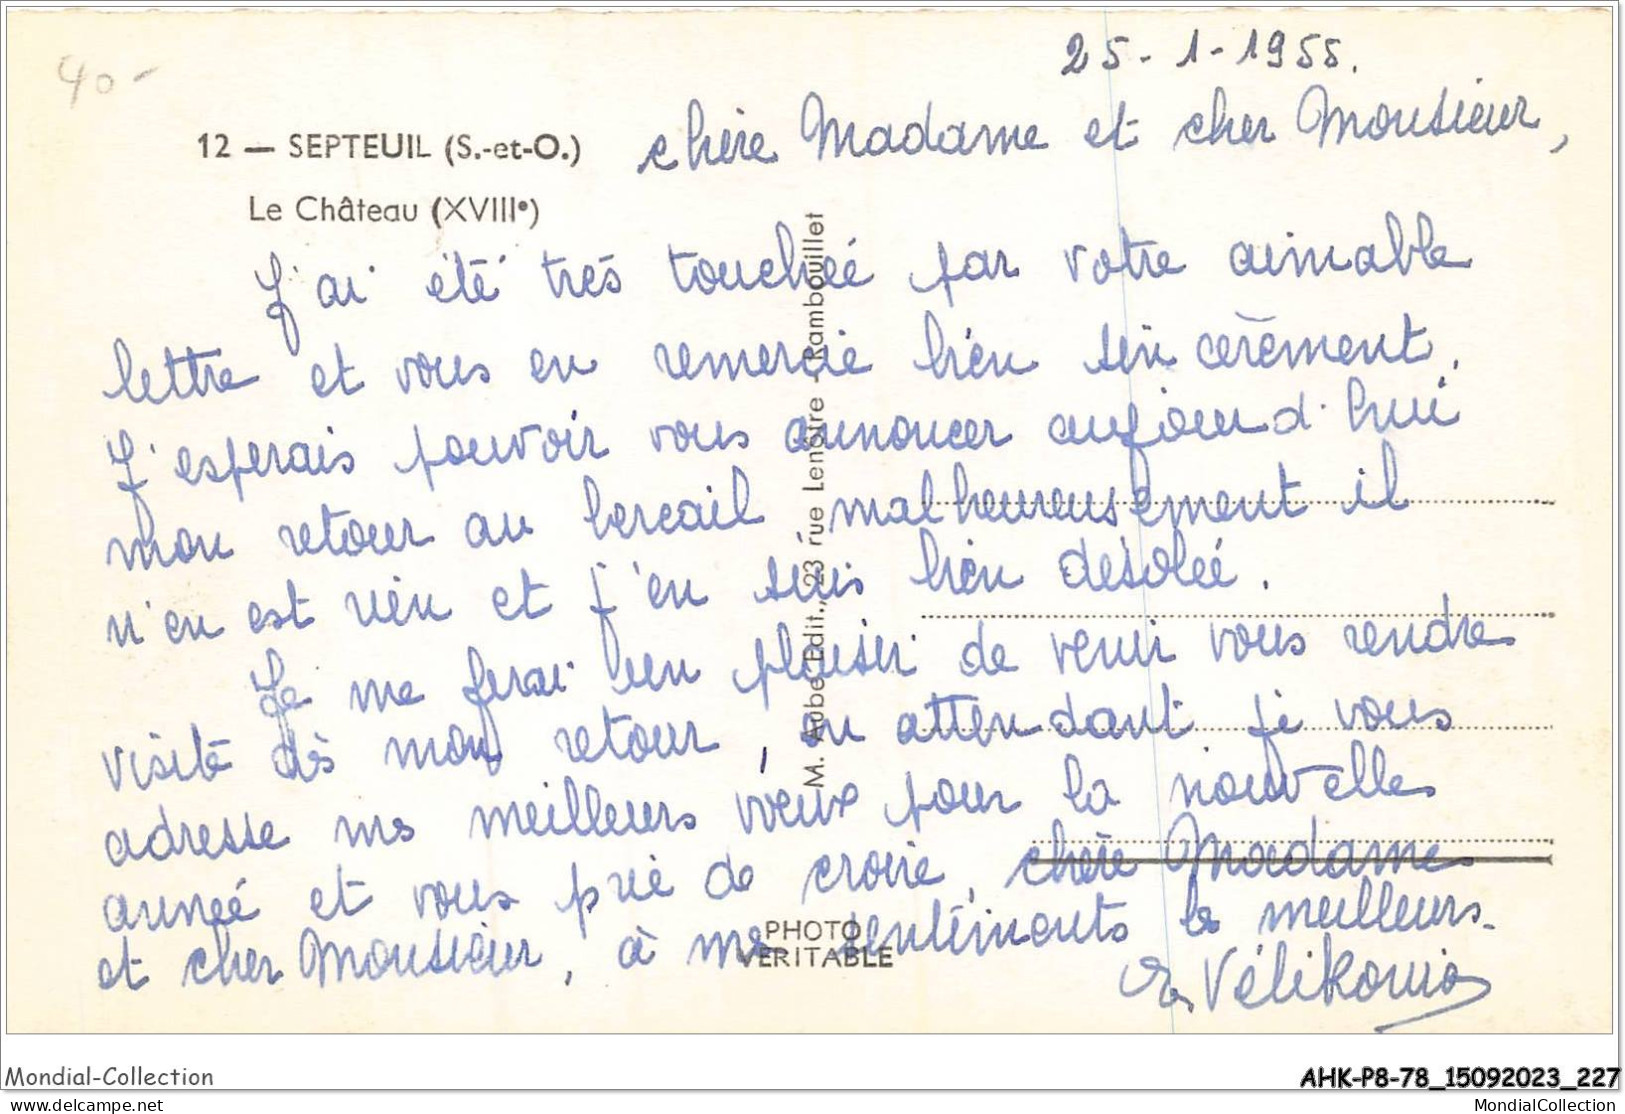 40-
25-1-1955.
12 — SEPTEUIL (S.-et-O.)
Le Château (XVIIIe)
chère Madame et cher Monsieur,
J'ai été très touchée par votre aimable
lettre et vous en remercie bien sincèrement.
J'esperais pouvoir vous annoncer aujourd'hui
mon retour au bercail malheureusement il
n'en est rien et j'en suis bien désolée.
Je me ferai un plaisir de venir vous rendre
visite dès mon retour, en attendant je vous
adresse mes meilleurs vœux pour la nouvelle
année et vous prie de croire, chère Madame
et cher Monsieur, à mes sentiments les meilleurs.
Vélikonia
M. Aubé Edit., 23 rue Lenôtre - Rambouillet
PHOTO
VERITABLE
Mondial-Collection
AHK-P8-78_15092023_227
www.delcampe.net
MondialCollection